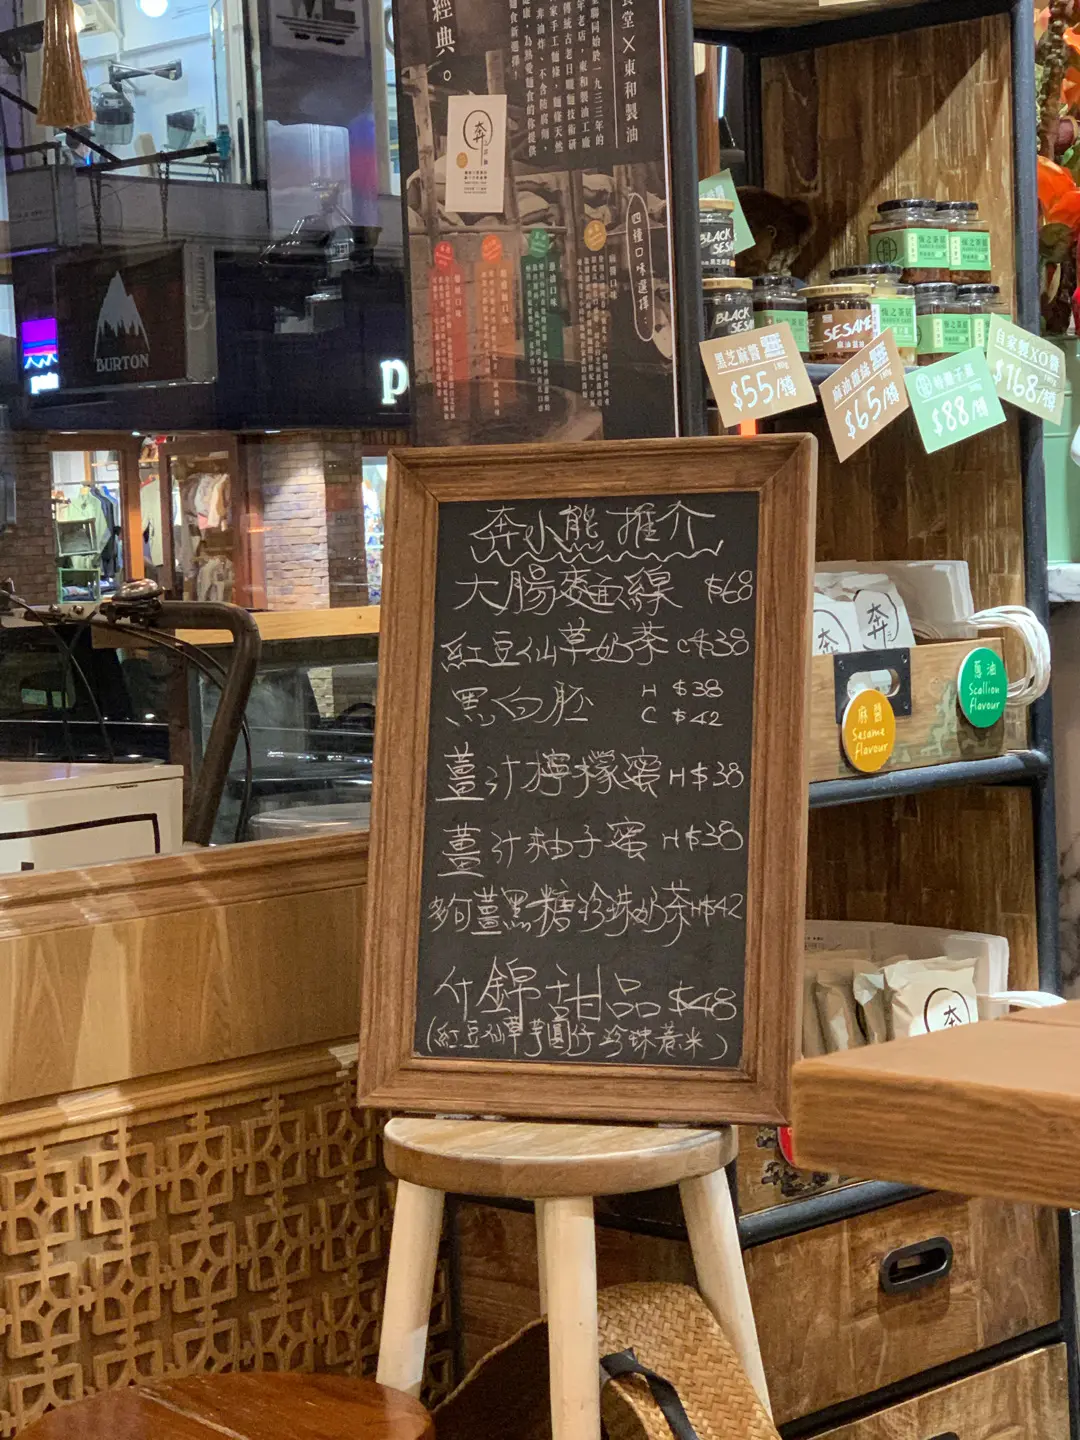 經典。
食堂 × 東和製油
奔
四種口味選擇:
BURTON
BLACK
SESA
BLACK
SESA
SESAME
黑芝麻醬
$55/樽
$65/樽
$88/樽
自家製XO醬
$168/樽
奔小熊推介
大腸麵線 $68
紅豆仙草奶茶 C$38
黑白胚 H $38
C $42
薑汁檸檬蜜 H$38
薑汁柚子蜜 H$38
多何薑黑糖珍珠奶茶H$42
什錦甜品 $48
(紅豆仙草芋圓仔珍珠薏米)
奔
奔
蔥油
Scallion
flavour
麻醬
Sesame
flavour
奔